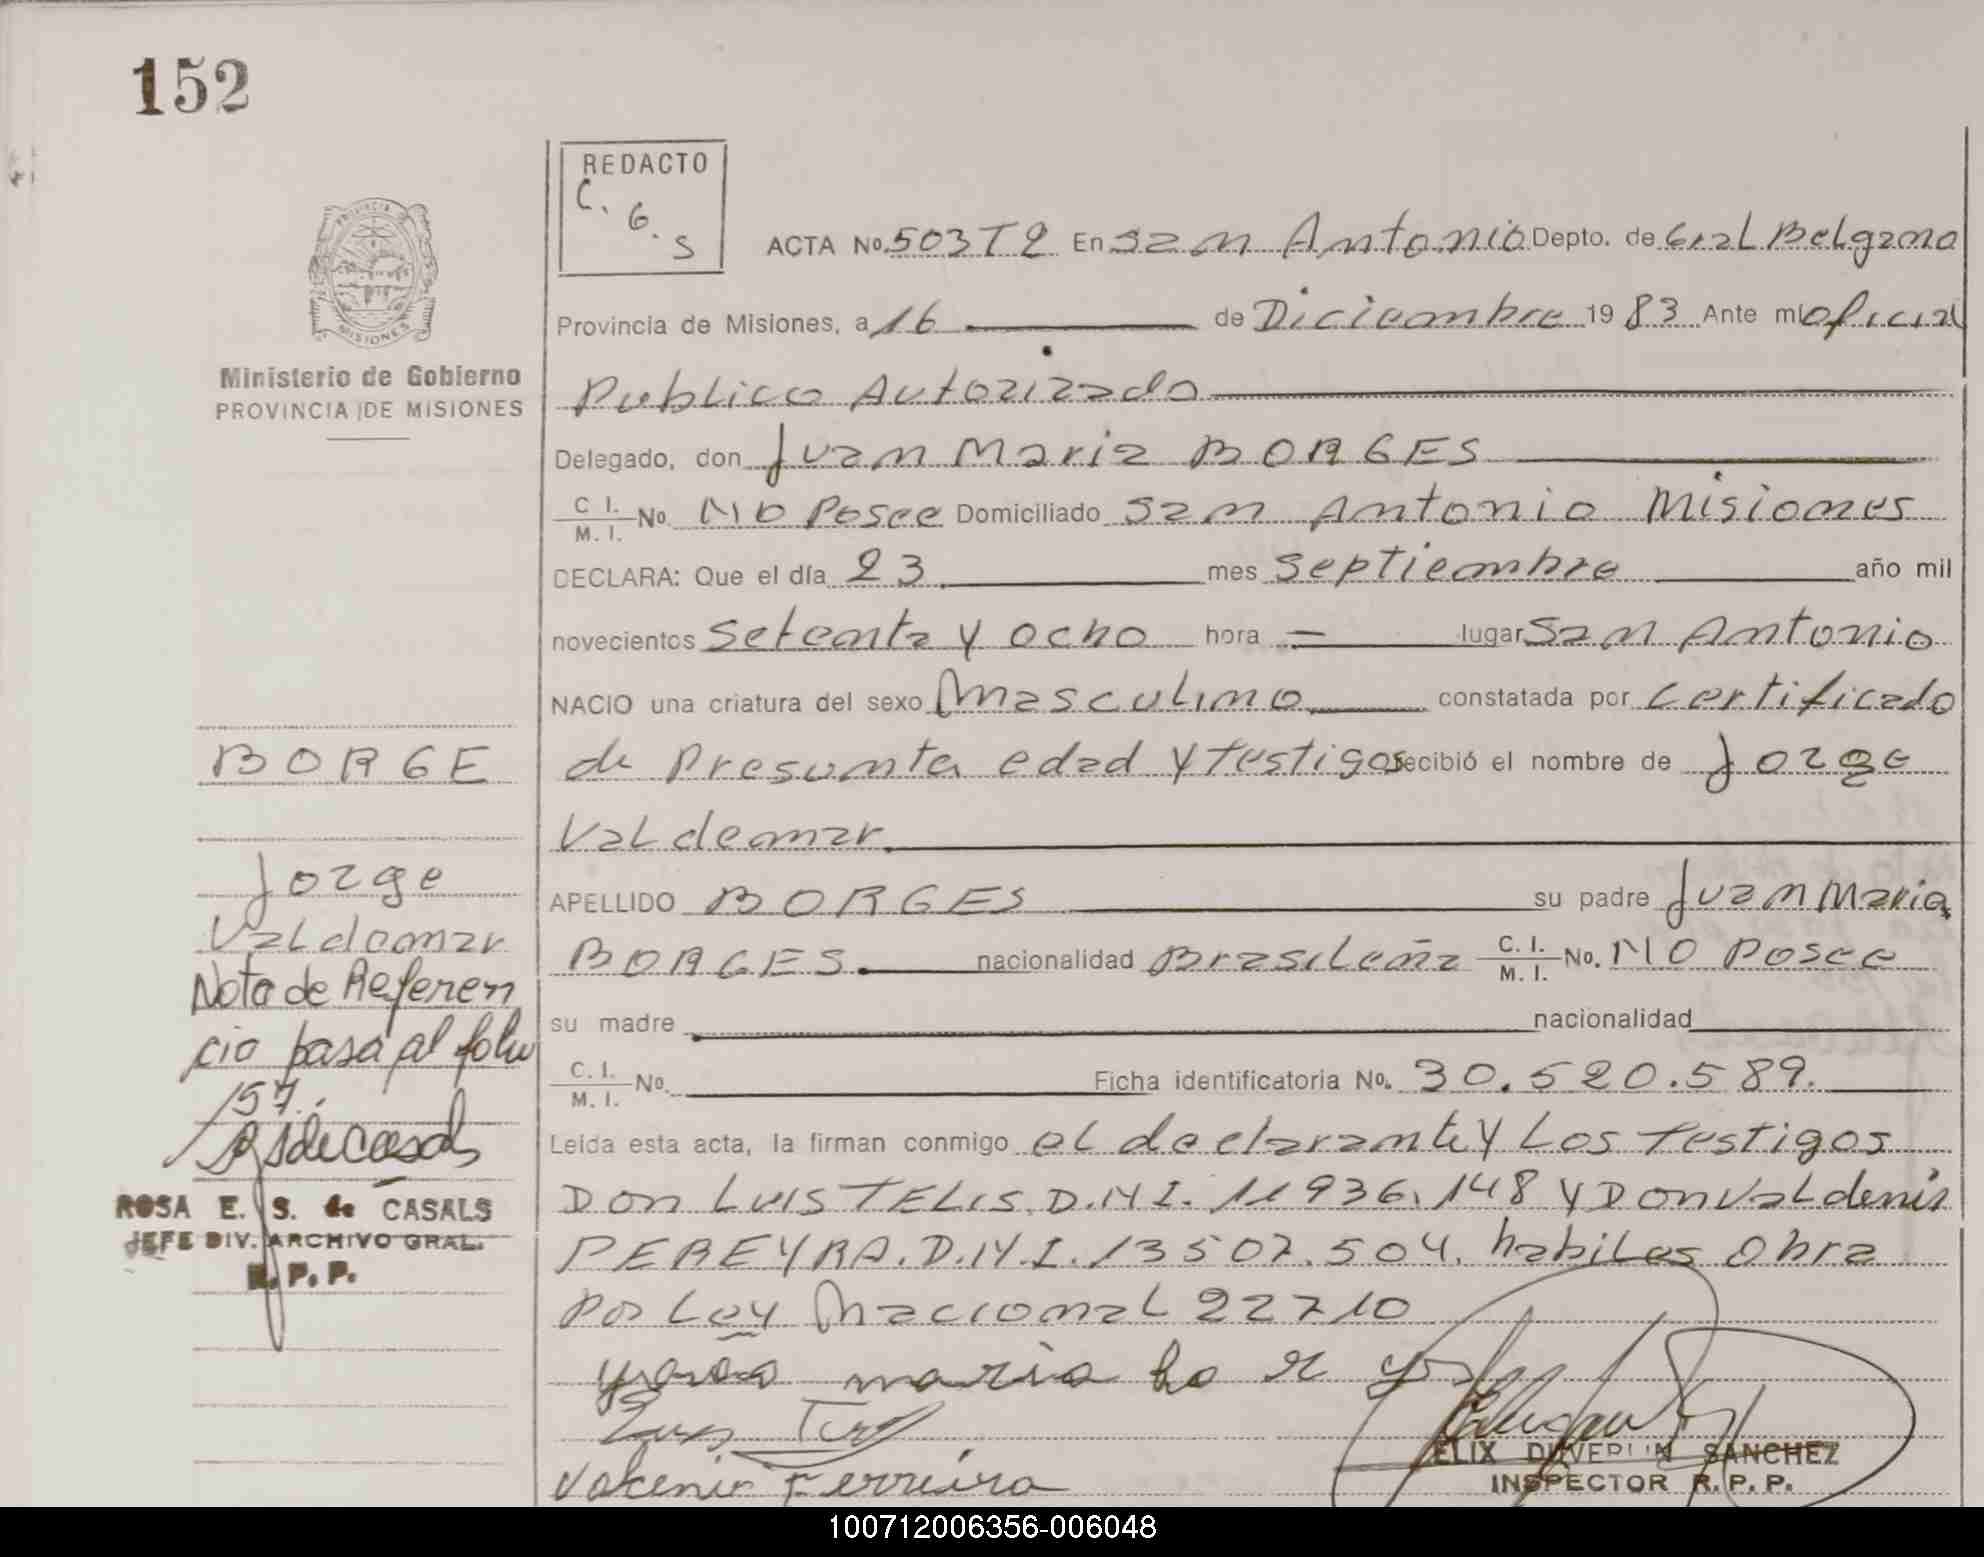 152
REDACTO
C.
G.
S
PROVINCIA
MISIONES
Ministerio de Gobierno
PROVINCIA DE MISIONES
ACTA No. 503T2 En San Antonio Depto. de Gral Belgrano
Provincia de Misiones, a 16 de Diciembre 1983 Ante mi oficial
Publico Autorizado
Delegado, don Juan Maria BORGES
C. I. / M. I. No. No Posee Domiciliado San Antonio Misiones
DECLARA: Que el día 23 mes Septiembre año mil
novecientos Setenta y ocho hora = lugar San Antonio
NACIO una criatura del sexo Masculino constatada por Certificado
de Presunta edad y testigos recibió el nombre de Jorge
Valdemar
APELLIDO BORGES su padre Juan Maria
BORGES. nacionalidad Brasileña C. I. / M. I. No. No Posee
su madre nacionalidad
C. I. / M. I. No. Ficha identificatoria No. 30.520.589.
Leída esta acta, la firman conmigo el declarante y Los testigos
Don LUIS TELIS. D.N.I. 11936.148 y Don Valdenir
PEREYRA. D.N.I. 13507.504. habiles Obra
por Ley Nacional 22710
maria
Luis
Ferreira
BORGE
Jorge
Valdemar
Nota de Referen
cia pasa al folio
157.
ROSA E. S. de CASALS
JEFE DIV. ARCHIVO GRAL.
R. P. P.
SANCHEZ
INSPECTOR R. P. P.
100712006356-006048